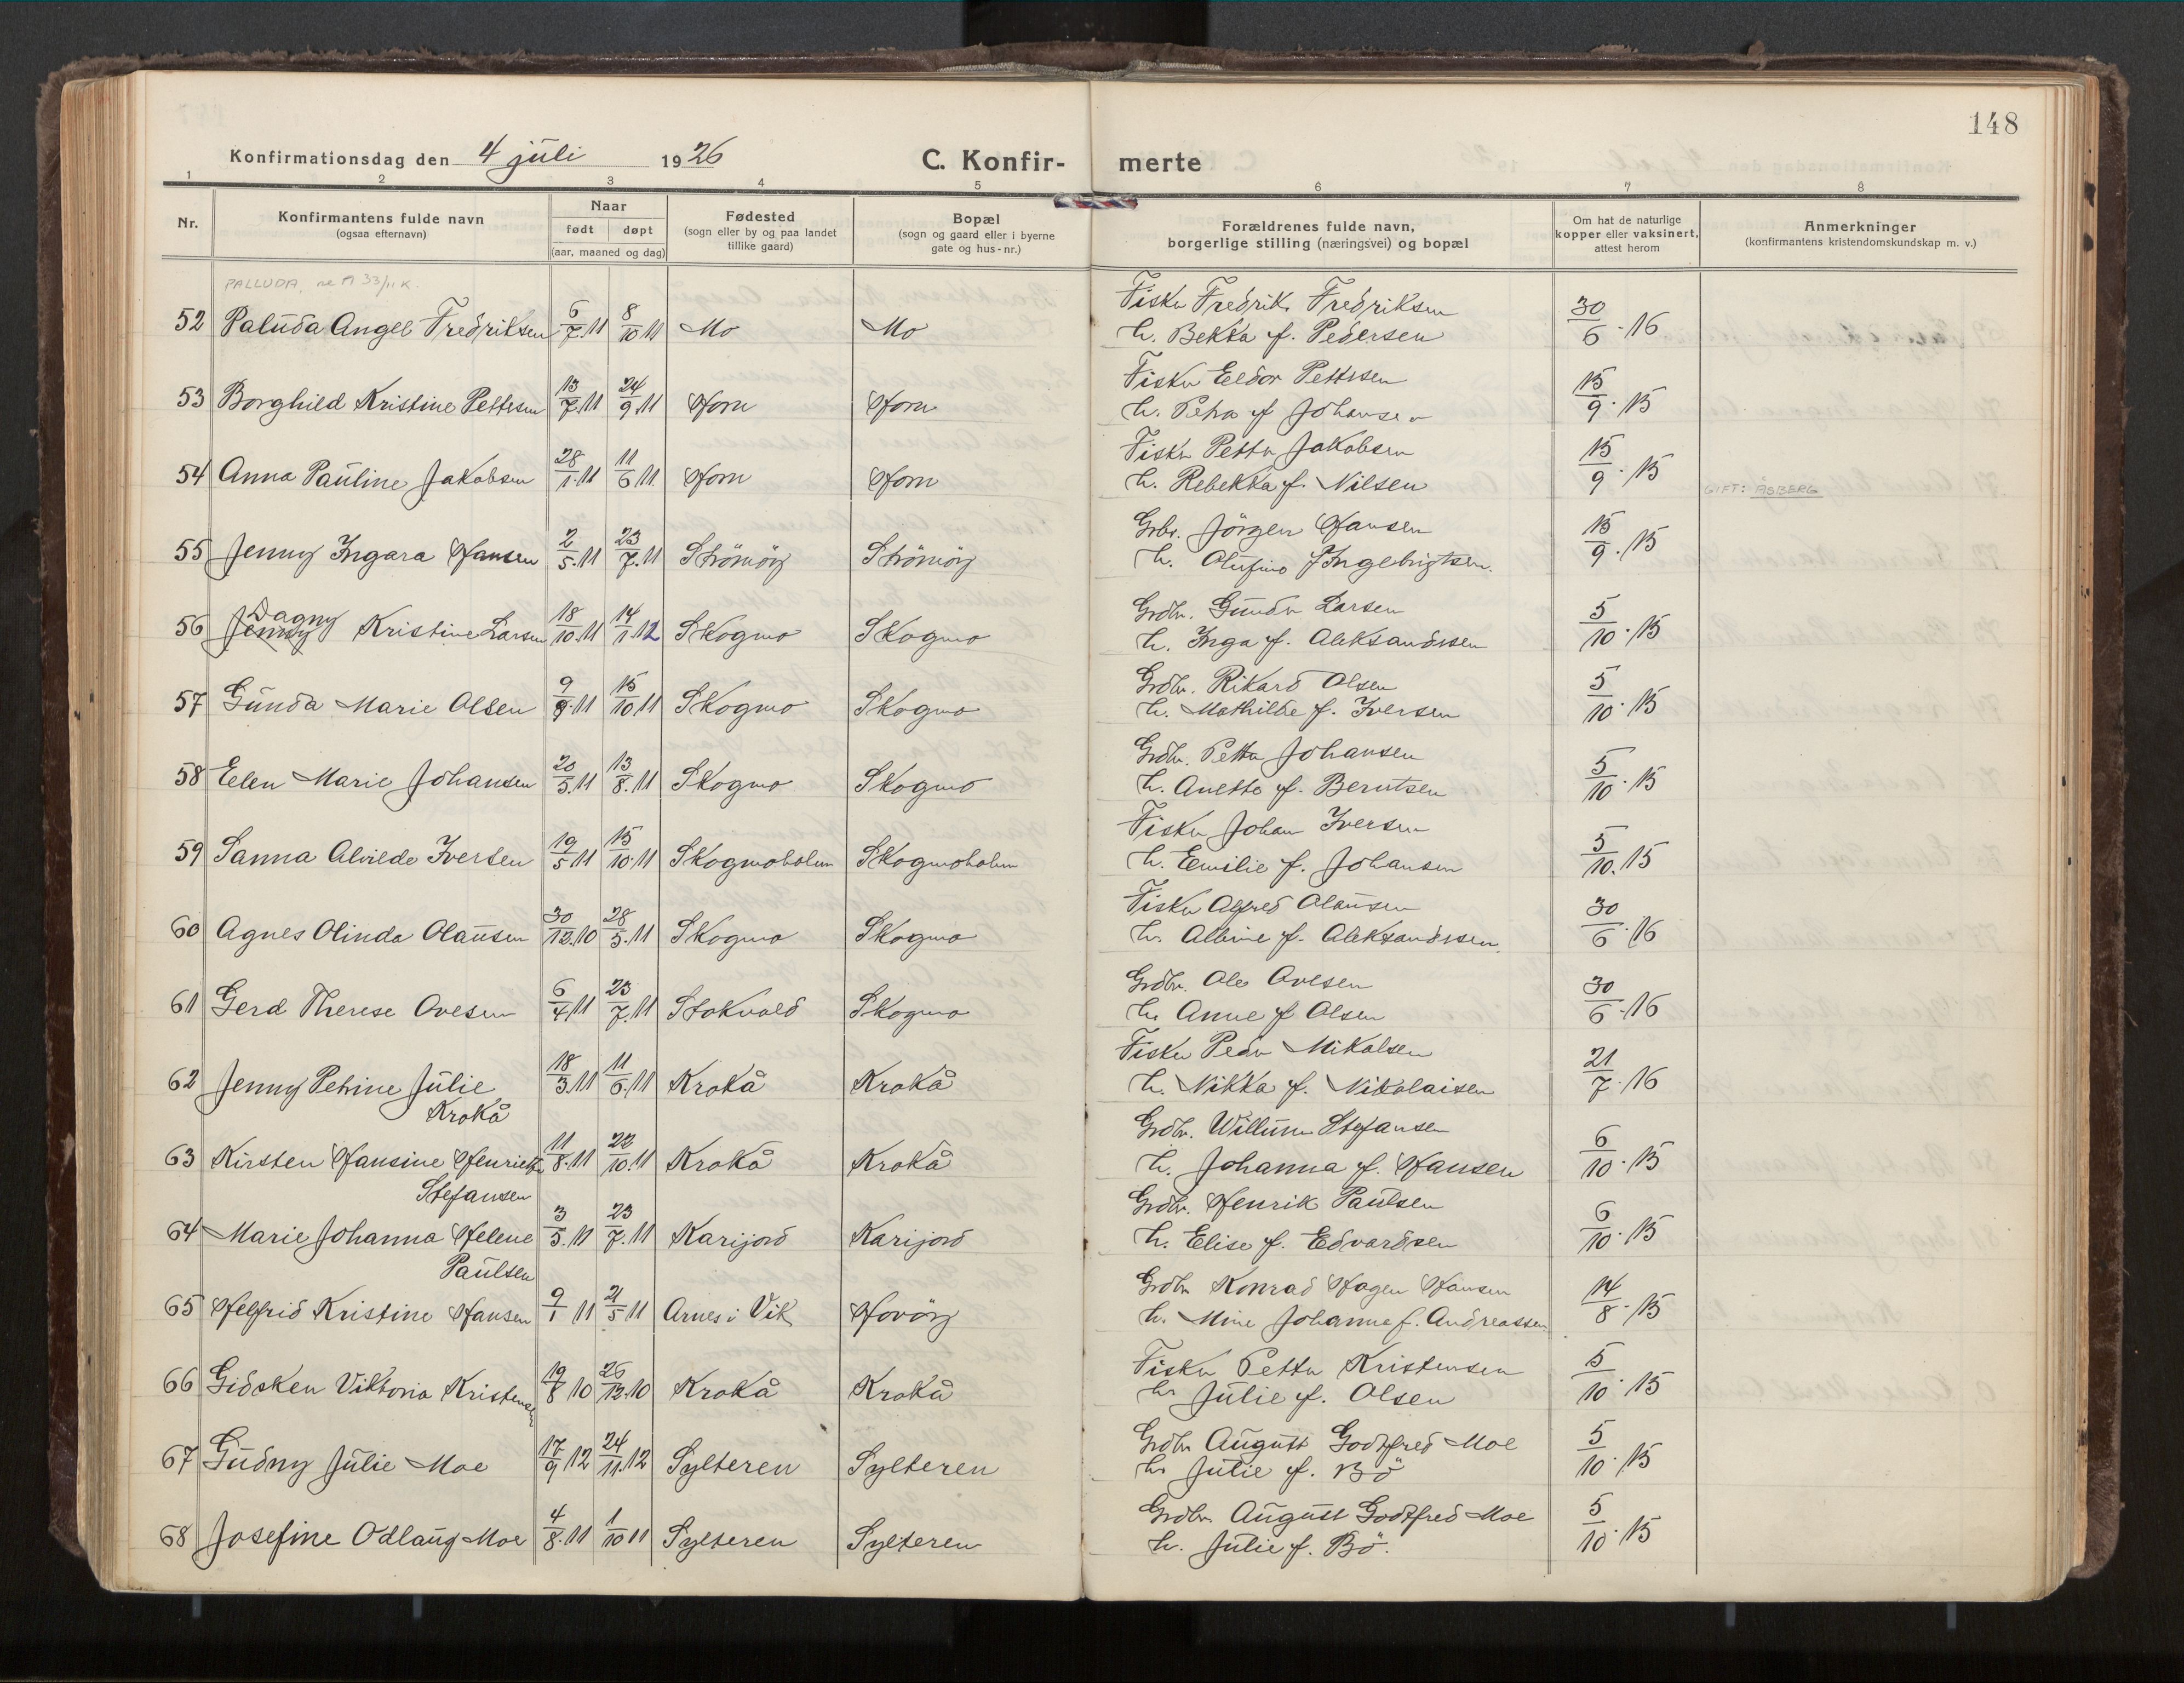 148
Konfirmationsdag den 4 juli 1926 C. Konfir- merte
1 2 3 4 5 6 7 8
Nr.
Konfirmantens fulde navn
(ogsaa efternavn)
Naar
født døpt
(aar, maaned og dag)
Fødested
(sogn eller by og paa landet
tillike gaard)
Bopæl
(sogn og gaard eller i byerne
gate og hus-nr.)
Forældrenes fulde navn,
borgerlige stilling (næringsvei) og bopæl
Om hat de naturlige
kopper eller vaksinert,
attest herom
Anmerkninger
(konfirmantens kristendomskundskap m. v.)
PALLUDA, 33/11 K.
52 Paluda Angel Fredriksen 6/7.11 8/10 11 Mo Mo Fisker Fredrik Fredriksen 30/6.16
h. Bekka f. Pedersen
53 Borghild Kristine Pettersen 13/7.11 24/9.11 Horn Horn Fisker Eldor Pettersen 15/9.15
h. Petra f Johansen
54 Anna Pauline Jakobsen 28/1.11 11/6 11. Horn Horn Fisker Petter Jakobsen 15/9.15
h. Rebekka f. Nilsen
GIFT: ÅSBERG
55 Jenny Ingara Hansen 2/5.11 23/7.11 Strömöy Strömöy Grbr. Jörgen Hansen 15/9.15
h. Olufine f Ingebrigtsen.
Dagny
56 Jenny Kristine Larsen 18/10.11 14/1.12 Skogmo Skogmo Grdbr. Gunder Larsen 5/10.15
h. Inga f. Aleksandersen
57 Gunda Marie Olsen 9/9.11 15/10.11 Skogmo Skogmo Grdbr. Rikard Olsen 5/10.15
h. Mathilde f. Iversen
58 Eelen Marie Johansen 20/5.11 13/8.11 Skogmo Skogmo Grdbr. Petter Johansen 5/10.15
h. Anette f. Berntsen
59 Sanna Alvilde Iversen 19/5 11 15/10.11 Skogmoholm Skogmoholm Fisker Johan Iversen 5/10.15
h. Emilie f. Johansen
60 Agnes Olinda Olausen 30/12.10 28/5.11 Skogmo Skogmo Fisker Alfred Olausen 30/6.16
h. Albine f. Aleksandersen.
61 Gerd Therese Ovesen 6/4.11 23/7.11 Stokvold Skogmo Grdbr. Ole Ovesen 30/6.16
h. Anne f Olsen
62 Jenny Petrine Julie 18/3.11 11/6.11 Krokå Krokå Fisker Peder Mikalsen 21/7.16
Krokå
h. Nikka f. Nikolaisen
63 Kirsten Hansine Henriette 11/8.11 22/10.11 Krokå Krokå Grdbr. Willum Stefansen 6/10.15
Stefansen
h. Johanna f. Hansen
64 Marie Johanna Helene 3/5.11 23/7.11 Karijord Karijord Grdbr. Henrik Paulsen 6/10.15
Paulsen
h. Elise f. Edvardsen
65 Helfrid Kristine Hansen 9/1 11 21/5 11 Arnes i Vik Havöy Grdbr Konrad Hagen Hansen 14/8.15
h. Mine Johanne f. Andreassen
66 Gidsken Viktoria Kristensen 19/8 10 26/12.10 Krokå Krokå Fisker Petter Kristensen 5/10.15
h. Julie f. Olsen
67 Gudny Julie Moe 17/9 12 24/11.12 Sylteren Sylteren Grdbr August Godtfred Moe 5/10.15
h. Julie f. Bö
68 Josefine Odlaug Moe 4/8.11 1/10 11 Sylteren Sylteren Grdbr. August Godtfred Moe 5/10.15
h. Julie f. Bö.